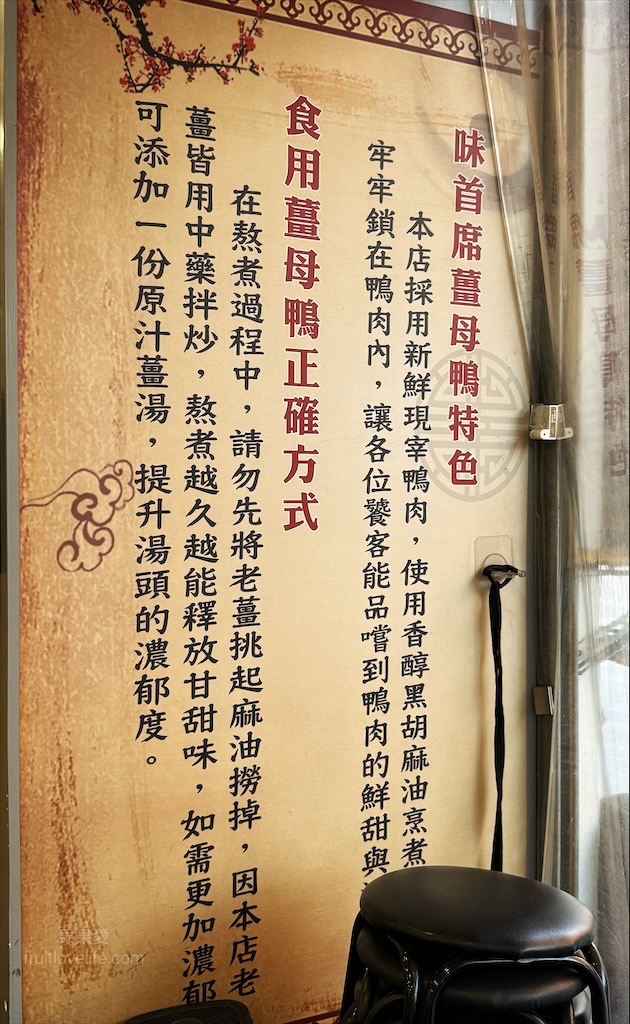 味首席薑母鴨特色
本店採用新鮮現宰鴨肉，使用香醇黑胡麻油烹煮
牢牢鎖在鴨肉內，讓各位饕客能品嚐到鴨肉的鮮甜與
食用薑母鴨正確方式
在熬煮過程中，請勿先將老薑挑起麻油撈掉，因本店老
薑皆用中藥拌炒，熬煮越久越能釋放甘甜味，如需更加濃郁
可添加一份原汁薑湯，提升湯頭的濃郁度。
果果愛
fruitlovelife.com